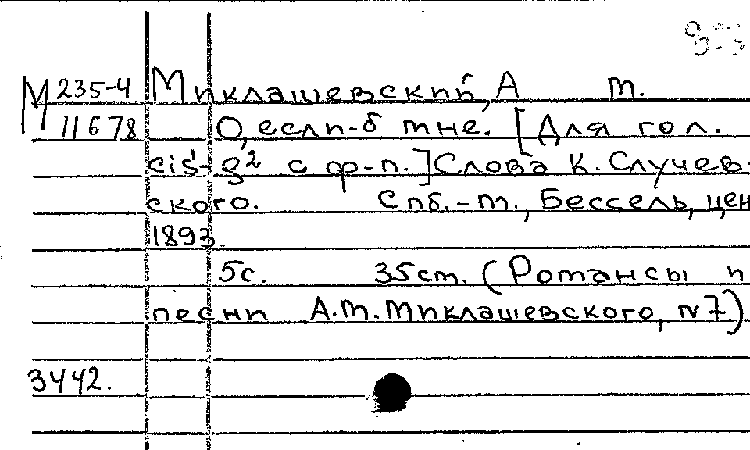 М 235-4 Миклашевский, А М.
11678 О, если-б мне. [Для гол.
cis¹-g² с ф-п.] Слова К. Случев-
ского. Спб.-М., Бессель, ценз
1893.
5с. 35см. (Романсы и
песни А.М.Миклашевского, №7)
3442.